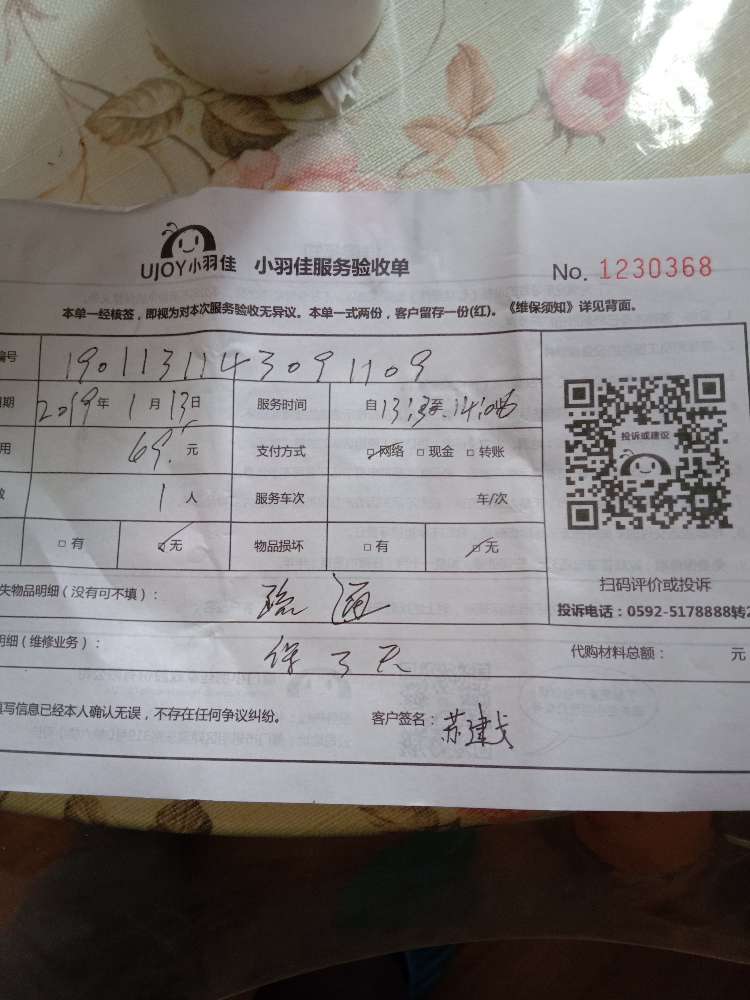 UJOY小羽佳 小羽佳服务验收单 No. 1230368
本单一经核签，即视为对本次服务验收无异议。本单一式两份，客户留存一份(红)。《维保须知》详见背面。
编号 1901131143091109
期 2019年 1月13日 服务时间 自 13:13至 14:06
用 69.元 支付方式 网络 现金 转账
1人 服务车次 车/次
投诉或建议
有 无 物品损坏 有 无
扫码评价或投诉
失物品明细（没有可不填）： 疏通
投诉电话：0592-5178888转2
明细（维修业务）： 保3天 代购材料总额： 元
填写信息已经本人确认无误，不存在任何争议纠纷。 客户签名：苏建